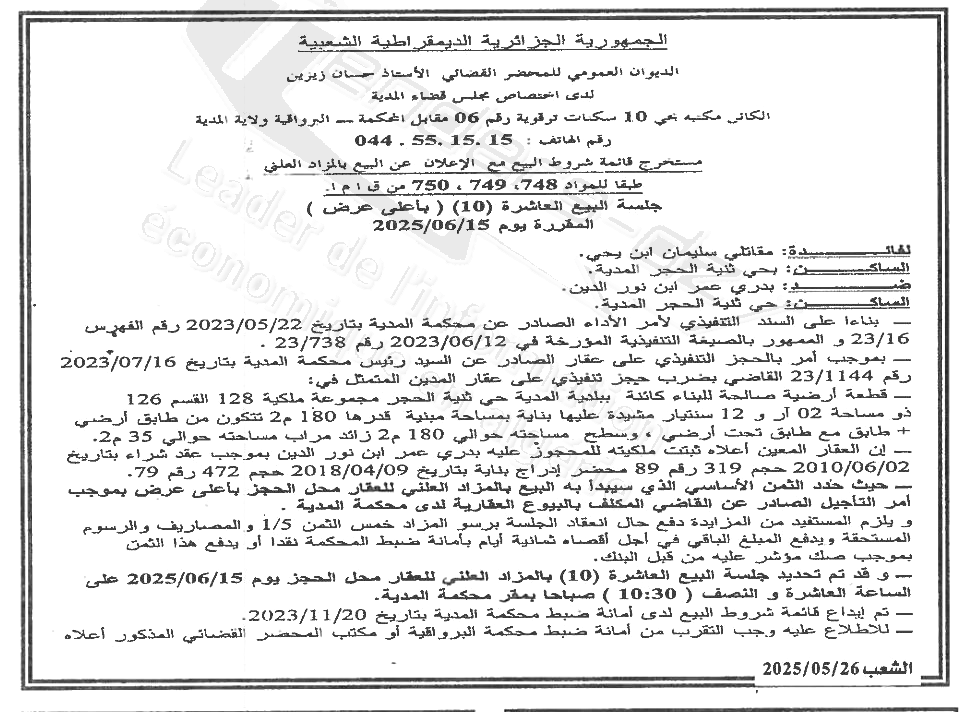 الجمهورية الجزائرية الديمقراطية الشعبية
الديوان العمومي للمحضر القضائي الأستاذ حسان زيزين
لدى اختصاص مجلس قضاء المدية
الكائن مكتبه بحي 10 سكنات ترقوية رقم 06 مقابل المحكمة – البرواقية ولاية المدية
رقم الهاتف : 15 .15 .55 . 044
مستخرج قائمة شروط البيع مع الإعلان عن البيع بالمزاد العلني
طبقا للمواد 748، 749 ، 750 من ق ا م ا.
جلسة البيع العاشرة (10) ( بأعلى عرض )
المقررة يوم 2025/06/15
لفائـــــــدة: مقاتلي سليمان ابن يحي.
الساكـــــن: بحي ثنية الحجر المدية.
ضـــــــد: بدري عمر ابن نور الدين.
الساكـــــن: حي ثنية الحجر المدية.
– بناءا على السند التنفيذي لأمر الأداء الصادر عن محكمة المدية بتاريخ 2023/05/22 رقم الفهرس
23/16 و الممهور بالصيغة التنفيذية المؤرخة في 2023/06/12 رقم 23/738 .
– بموجب أمر بالحجز التنفيذي على عقار الصادر عن السيد رئيس محكمة المدية بتاريخ 2023/07/16
رقم 23/1144 القاضي بضرب حجز تنفيذي على عقار المدين المتمثل في:
– قطعة أرضية صالحة للبناء كائنة ببلدية المدية حي ثنية الحجر مجموعة ملكية 128 القسم 126
ذو مساحة 02 آر و 12 سنتيار مشيدة عليها بناية بمساحة مبنية قدرها 180 م2 تتكون من طابق أرضي
+ طابق مع طابق تحت أرضي ، وسطح مساحته حوالي 180 م2 زائد مراب مساحته حوالي 35 م2.
– إن العقار المعين أعلاه ثبتت ملكيته للمحجوز عليه بدري عمر ابن نور الدين بموجب عقد شراء بتاريخ
2010/06/02 حجم 319 رقم 89 محضر إدراج بناية بتاريخ 2018/04/09 حجم 472 رقم 79.
– حيث حدد الثمن الأساسي الذي سيبدأ به البيع بالمزاد العلني للعقار محل الحجز بأعلى عرض بموجب
أمر التأجيل الصادر عن القاضي المكلف بالبيوع العقارية لدى محكمة المدية .
و يلزم المستفيد من المزايدة دفع حال انعقاد الجلسة برسو المزاد خمس الثمن 1/5 والمصاريف والرسوم
المستحقة ويدفع المبلغ الباقي في أجل أقصاه ثمانية أيام بأمانة ضبط المحكمة نقدا أو يدفع هذا الثمن
بموجب صك مؤشر عليه من قبل البنك.
– و قد تم تحديد جلسة البيع العاشرة (10) بالمزاد العلني للعقار محل الحجز يوم 2025/06/15 على
الساعة العاشرة و النصف ( 10:30 ) صباحا بمقر محكمة المدية.
– تم إيداع قائمة شروط البيع لدى أمانة ضبط محكمة المدية بتاريخ 2023/11/20.
– للاطلاع عليه وجب التقرب من أمانة ضبط محكمة البرواقية أو مكتب المحضر القضائي المذكور أعلاه
الشعب 2025/05/26